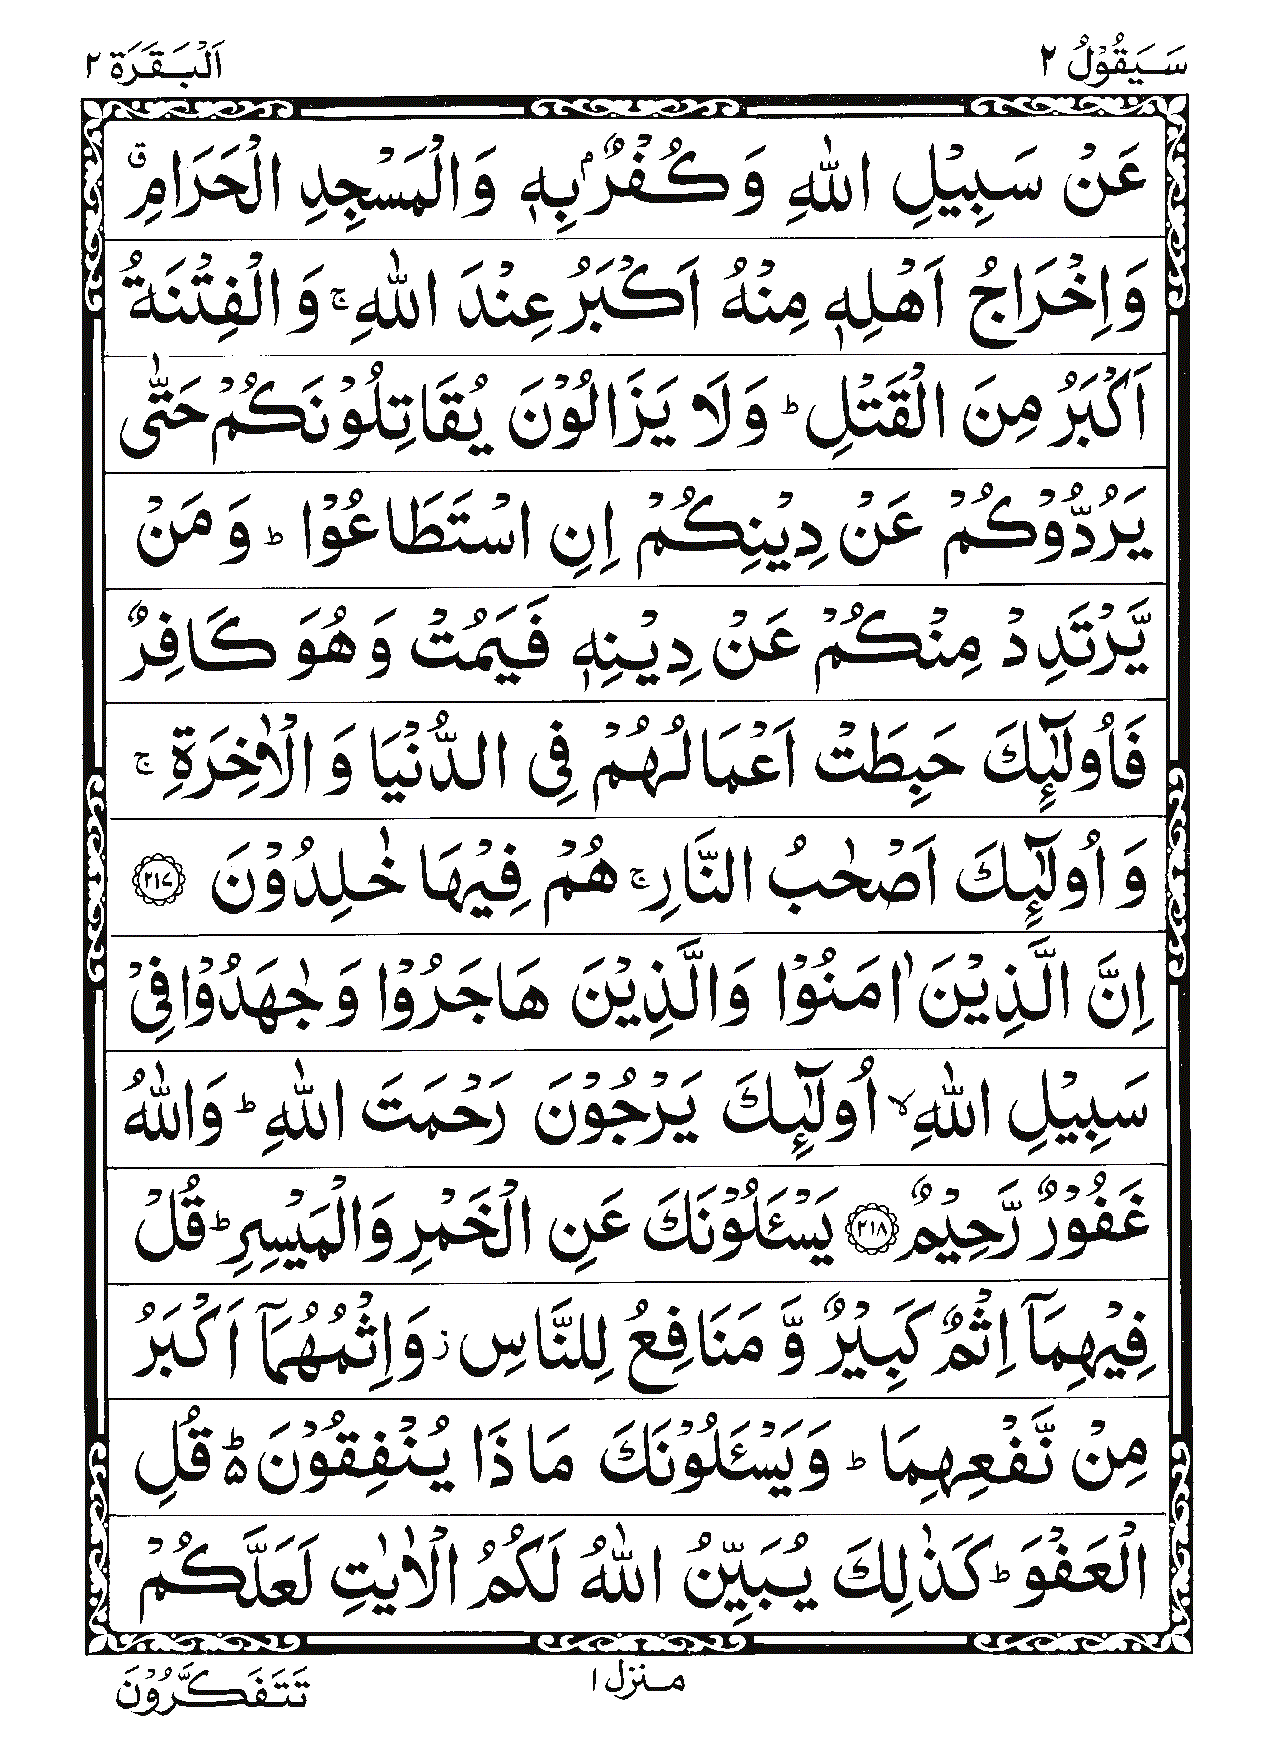 سَيَقُوْلُ ٢
اَلْبَقَرَة ٢
عَنْ سَبِيْلِ اللّٰهِ وَ كُفْرٌۢ بِهٖ وَالْمَسْجِدِ الْحَرَامِ ۗ
وَاِخْرَاجُ اَهْلِهٖ مِنْهُ اَكْبَرُ عِنْدَ اللّٰهِ ۚ وَ الْفِتْنَةُ
اَكْبَرُ مِنَ الْقَتْلِ ؕ وَلَا يَزَالُوْنَ يُقَاتِلُوْنَكُمْ حَتّٰى
يَرُدُّوْكُمْ عَنْ دِيْنِكُمْ اِنِ اسْتَطَاعُوْا ؕ وَ مَنْ
يَّرْتَدِدْ مِنْكُمْ عَنْ دِيْنِهٖ فَيَمُتْ وَ هُوَ كَافِرٌ
فَاُولٰٓئِكَ حَبِطَتْ اَعْمَالُهُمْ فِى الدُّنْيَا وَ الْاٰخِرَةِ ۚ
وَ اُولٰٓئِكَ اَصْحٰبُ النَّارِ ۚ هُمْ فِيْهَا خٰلِدُوْنَ ﴿٢١٧﴾
اِنَّ الَّذِيْنَ اٰمَنُوْا وَالَّذِيْنَ هَاجَرُوْا وَ جٰهَدُوْا فِىْ
سَبِيْلِ اللّٰهِ ۙ اُولٰٓئِكَ يَرْجُوْنَ رَحْمَتَ اللّٰهِ ؕ وَاللّٰهُ
غَفُوْرٌ رَّحِيْمٌ ﴿٢١٨﴾ يَسْـَٔلُوْنَكَ عَنِ الْخَمْرِ وَالْمَيْسِرِ ؕ قُلْ
فِيْهِمَآ اِثْمٌ كَبِيْرٌ وَّ مَنَافِعُ لِلنَّاسِ ز وَاِثْمُهُمَآ اَكْبَرُ
مِنْ نَّفْعِهِمَا ؕ وَيَسْـَٔلُوْنَكَ مَا ذَا يُنْفِقُوْنَ ۵ؕ قُلِ
الْعَفْوَ ؕ كَذٰلِكَ يُبَيِّنُ اللّٰهُ لَكُمُ الْاٰيٰتِ لَعَلَّكُمْ
منزل ١
تَتَفَكَّرُوْنَ